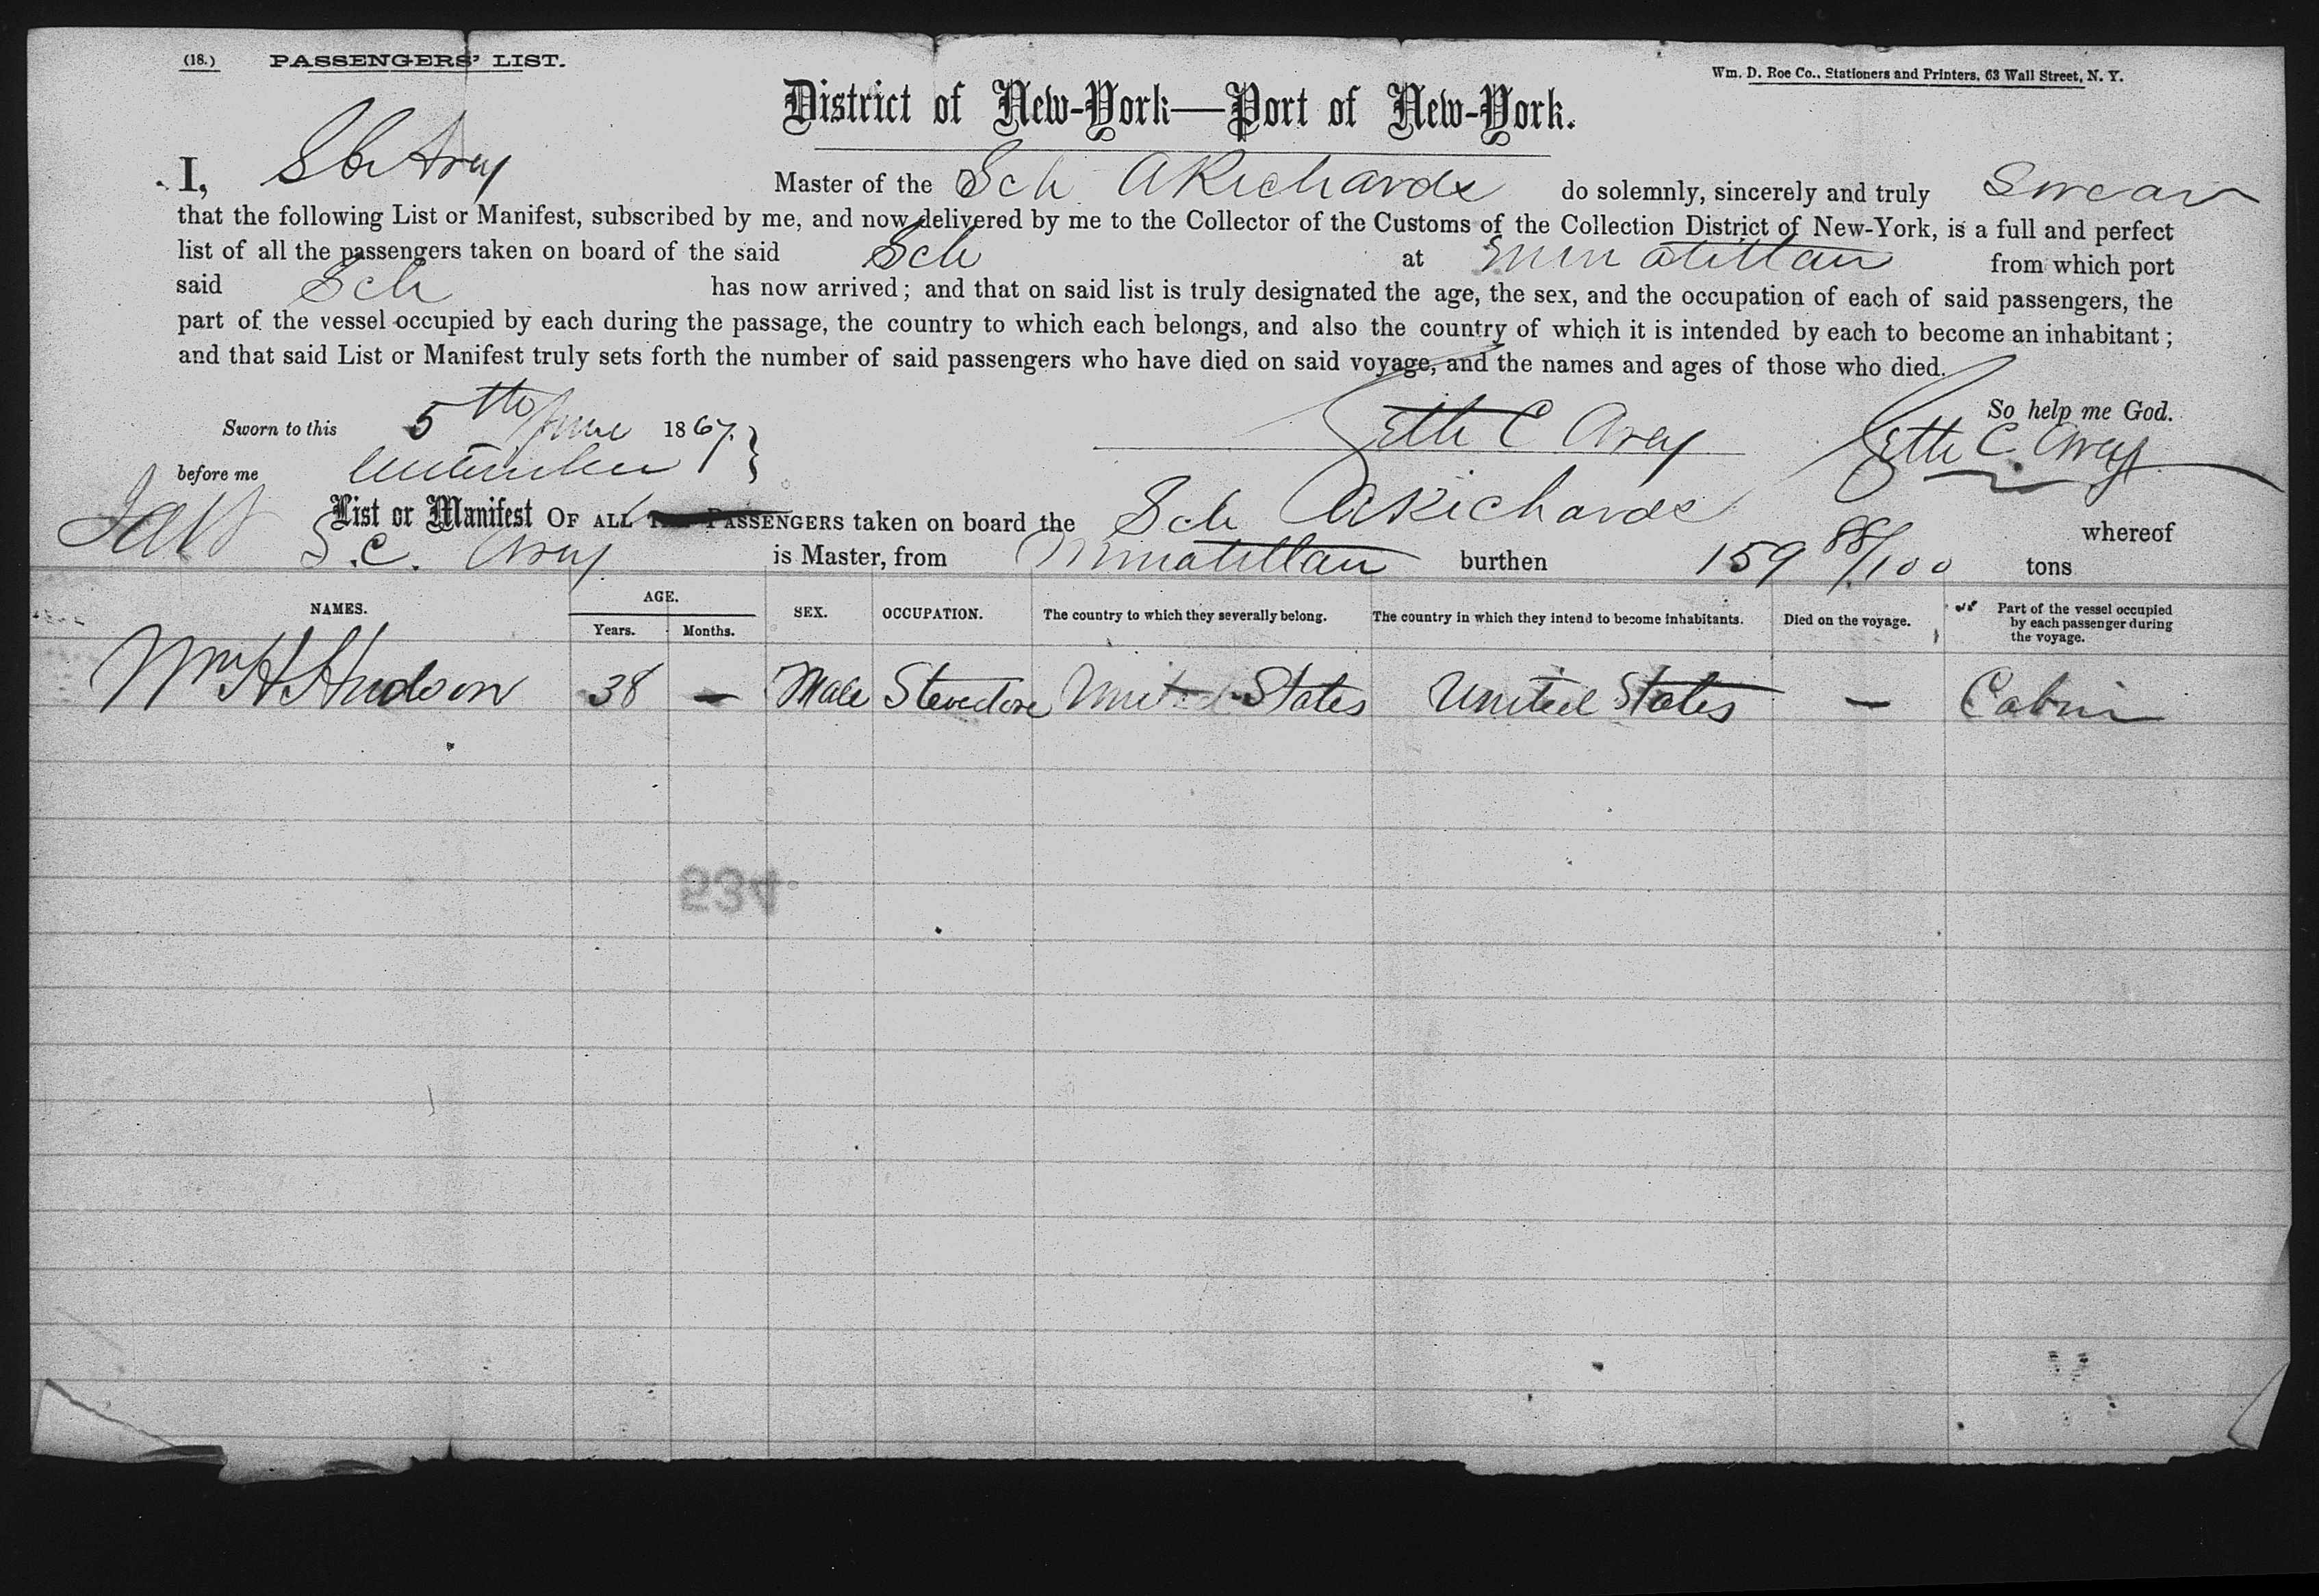 (18.) PASSENGERS' LIST.
Wm. D. Roe Co., Stationers and Printers, 63 Wall Street, N. Y.
District of New-York—Port of New-York.
I, S C Arey Master of the Sch A Richards do solemnly, sincerely and truly Swear
that the following List or Manifest, subscribed by me, and now delivered by me to the Collector of the Customs of the Collection District of New-York, is a full and perfect
list of all the passengers taken on board of the said Sch at Minatitlan from which port
said Sch has now arrived; and that on said list is truly designated the age, the sex, and the occupation of each of said passengers, the
part of the vessel occupied by each during the passage, the country to which each belongs, and also the country of which it is intended by each to become an inhabitant;
and that said List or Manifest truly sets forth the number of said passengers who have died on said voyage, and the names and ages of those who died.
So help me God.
Sworn to this 5th June 1867. Seth C Arey Seth C. Arey
before me
List or Manifest OF ALL PASSENGERS taken on board the Sch A Richards whereof
S. C. Arey is Master, from Minatitlan burthen 159 88/100 tons
NAMES. AGE. Years. Months. SEX. OCCUPATION. The country to which they severally belong. The country in which they intend to become inhabitants. Died on the voyage. Part of the vessel occupied by each passenger during the voyage.
Wm H Hudson 38 — Male Stevedore United States United States — Cabin
534